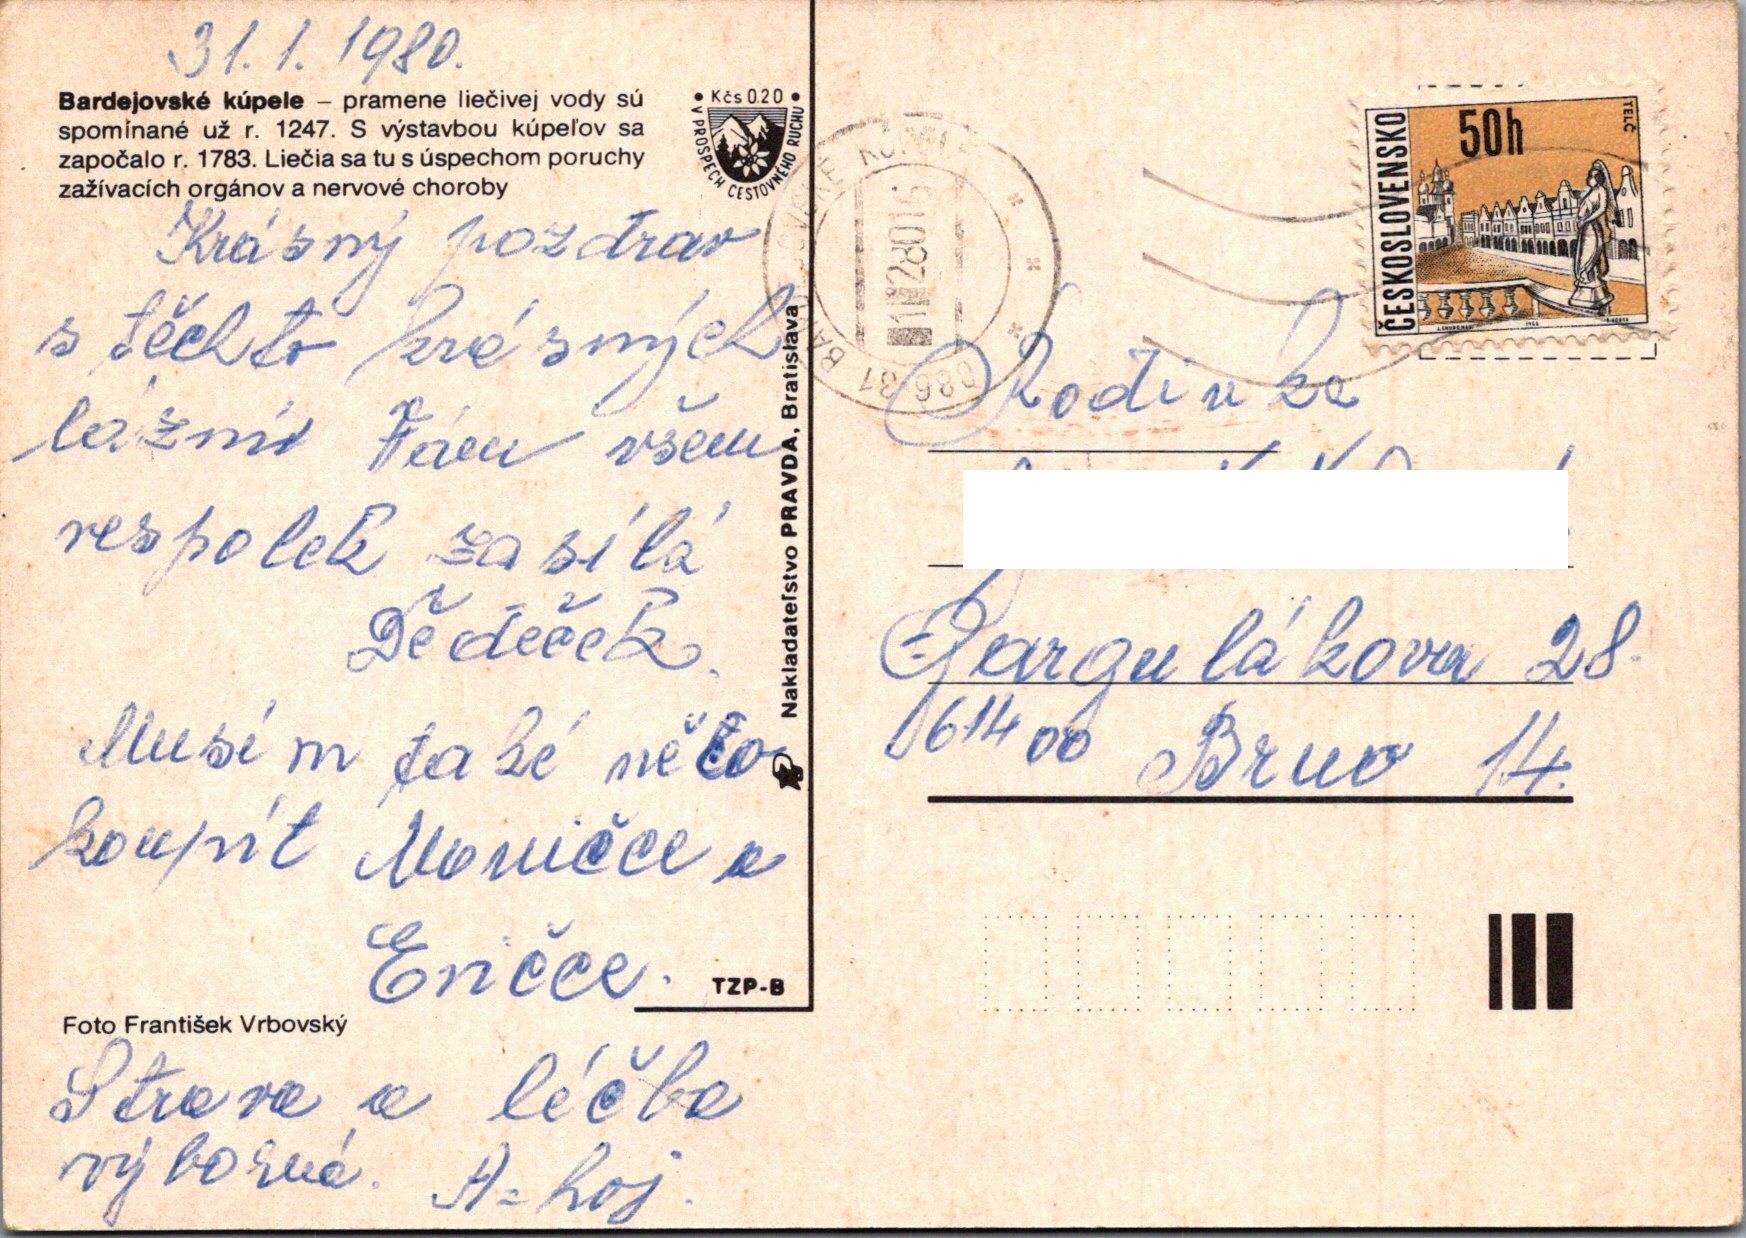 31. 1. 1980.
Bardejovské kúpele – pramene liečivej vody sú
spomínané už r. 1247. S výstavbou kúpeľov sa
započalo r. 1783. Liečia sa tu s úspechom poruchy
zažívacích orgánov a nervové choroby
• Kčs 0.20 •
V PROSPECH CESTOVNÉHO RUCHU
Krásný pozdrav
s těchto krásných
lázní Vám všem
vespolek zasílá
Dědeček.
Musím také něčo
koupit Moničce a
Eničce.
TZP-B
Foto František Vrbovský
Strava a léčba
výborná. A=hoj.
Nakladateľstvo PRAVDA, Bratislava
086 31
-1.2.80 16
ČESKOSLOVENSKO
50h
TELČ
Rodinka
Gargulákova 28.
614 00 Brno 14.